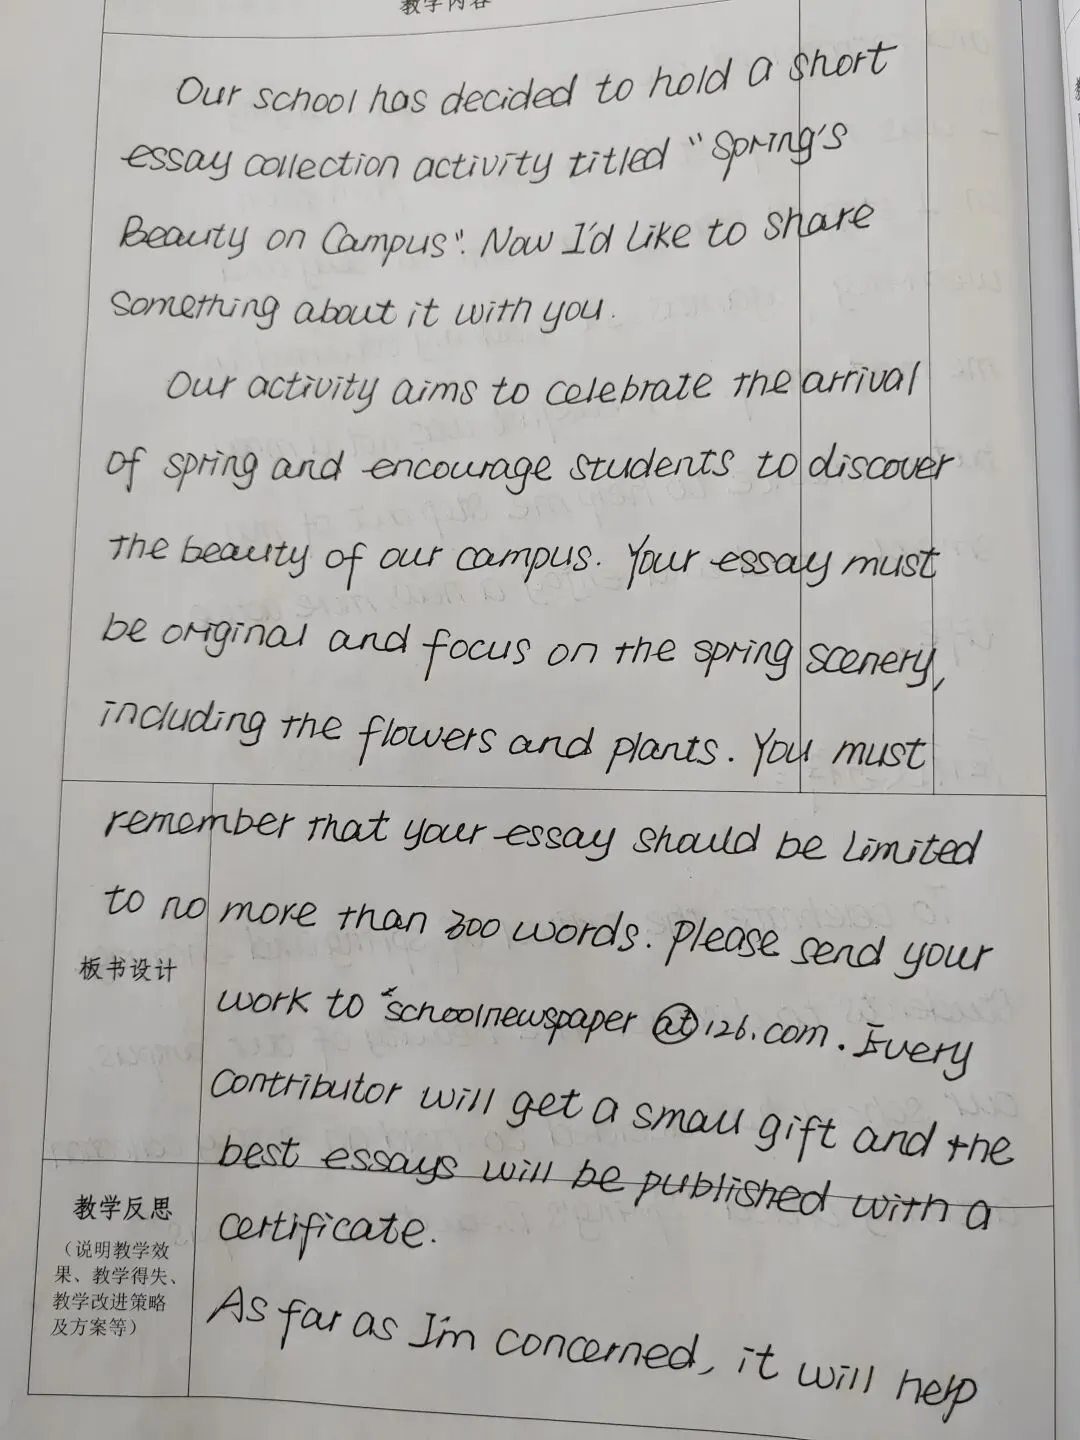 教学内容
Our school has decided to hold a short
essay collection activity titled "Spring's
Beauty on Campus". Now I'd like to share
something about it with you.
Our activity aims to celebrate the arrival
of spring and encourage students to discover
the beauty of our campus. Your essay must
be original and focus on the spring scenery,
including the flowers and plants. You must
remember that your essay should be limited
to no more than 300 words. Please send your
板书设计
work to "schoolnewspaper @126.com. Every
contributor will get a small gift and the
best essays will be published with a
教学反思
certificate.
(说明教学效
果、教学得失、
教学改进策略
及方案等)
As far as I'm concerned, it will help